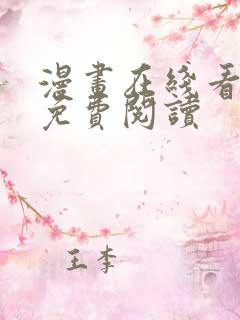 漫畫在綫看
免費閱讀
王李